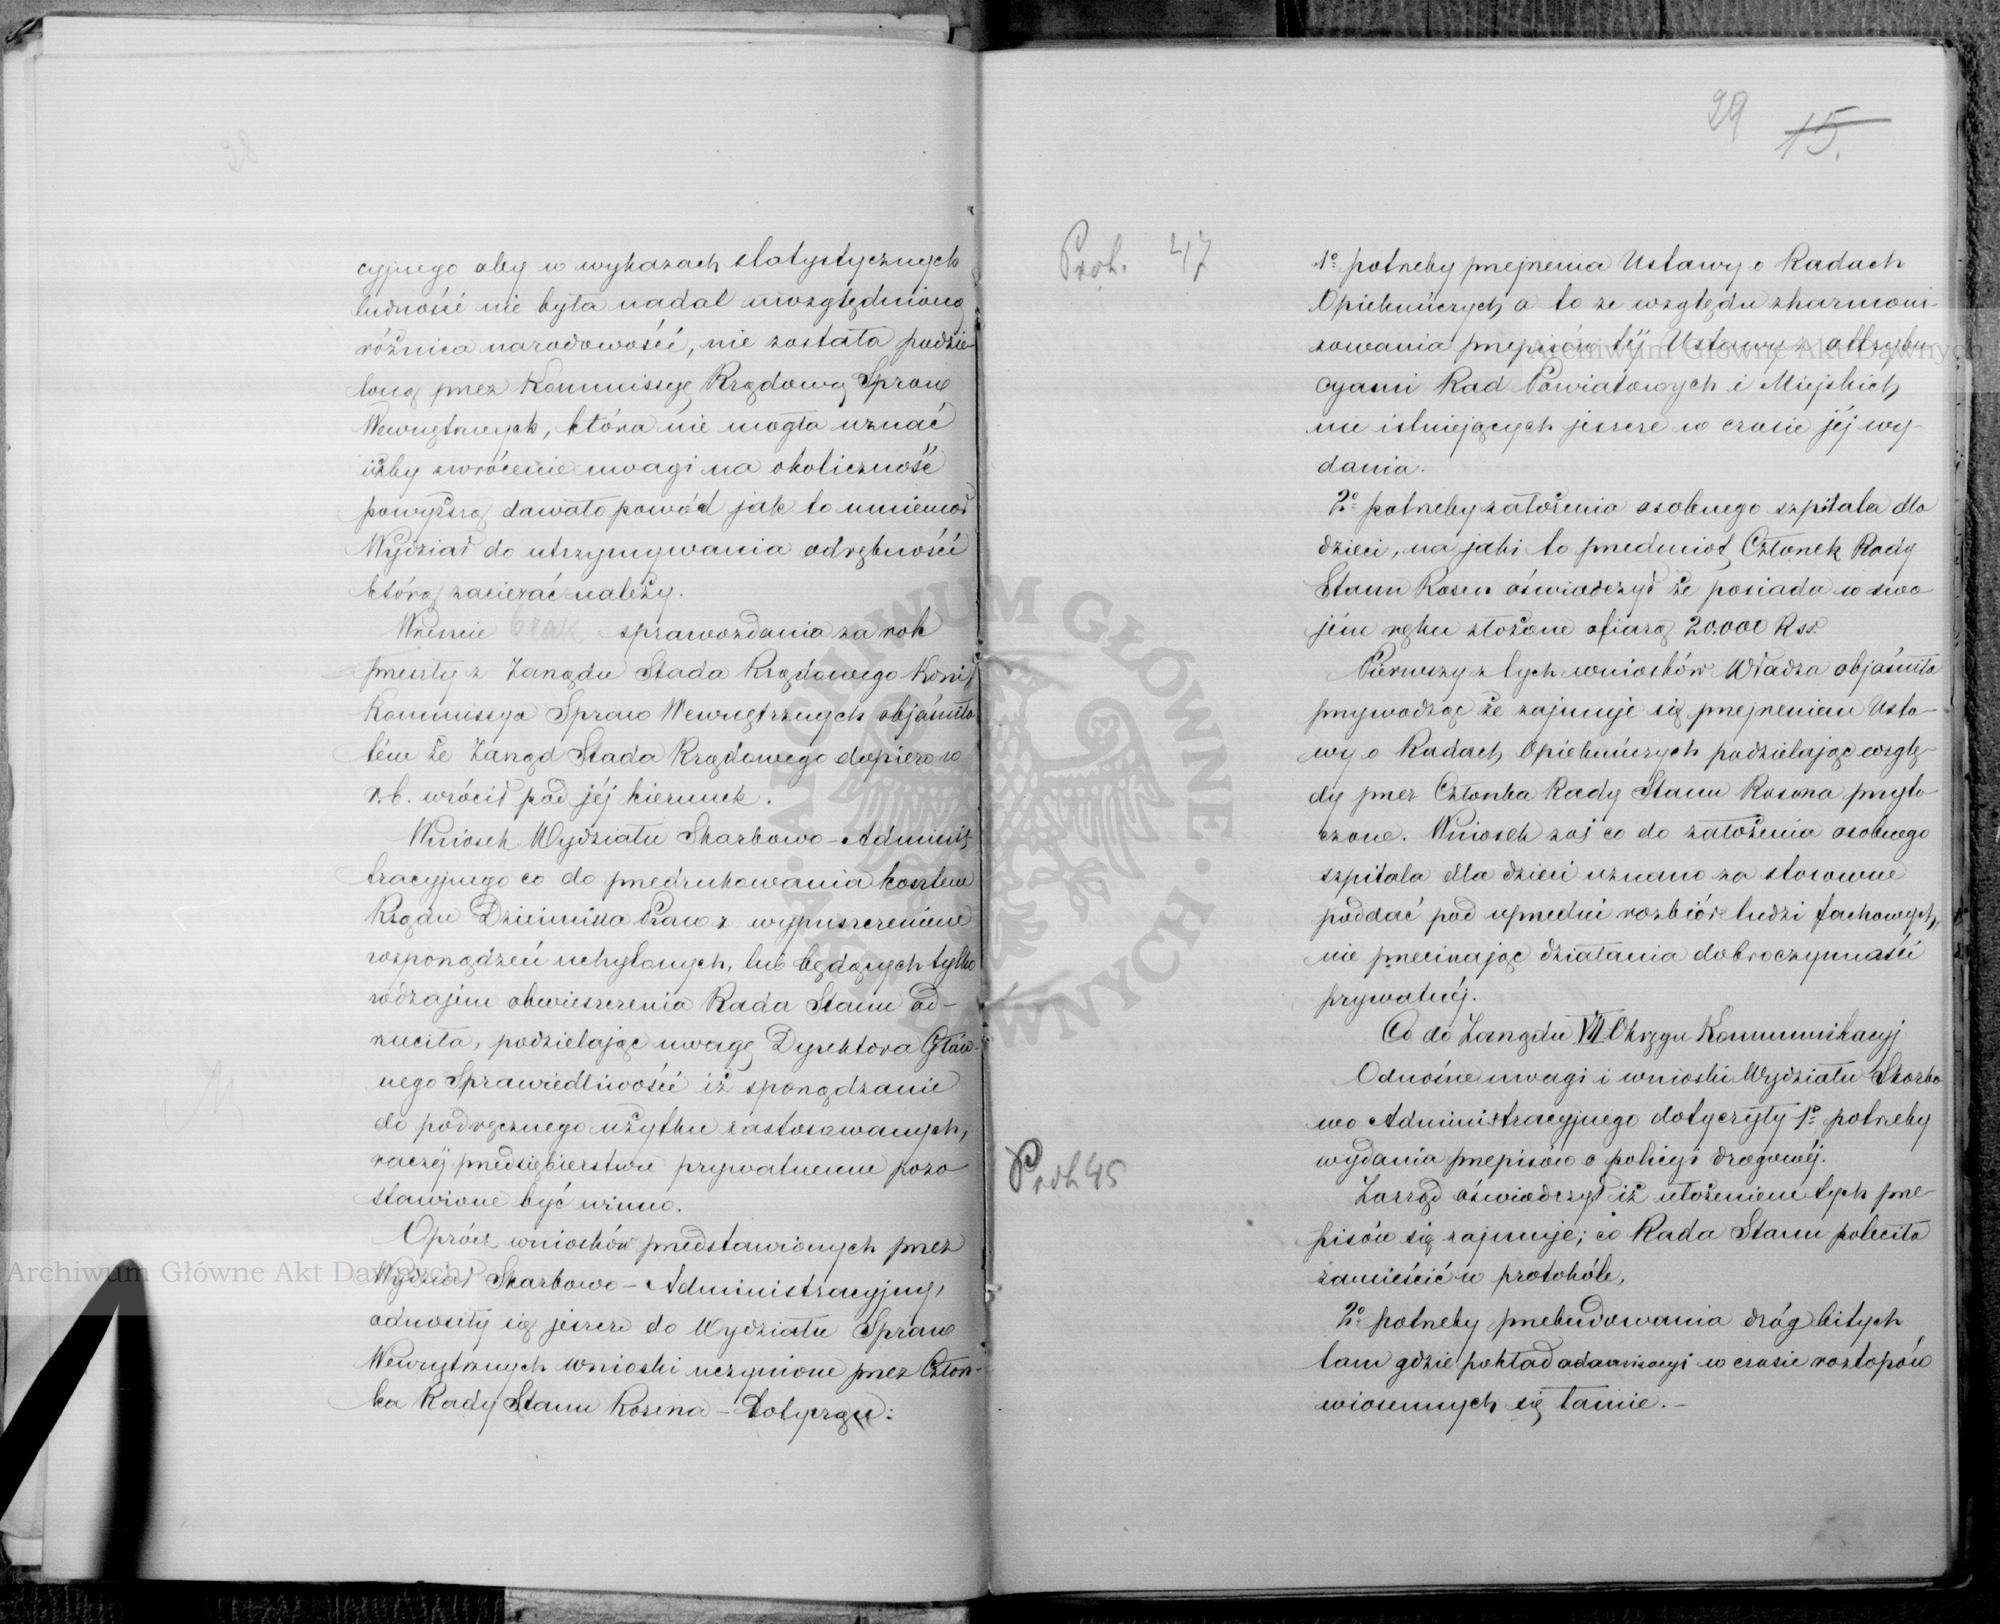 28
cyjnego aby w wykazach statystycznych
ludność nie była nadal uwzględnioną
różnica narodowości, nie została podzie
loną przez Kommissyę Rządową Spraw
Wewnętrznych, która nie mogła uznać
iżby zwrócenie uwagi na okoliczność
powyższą dawało powód jak to mniemał
Wydział do utrzymywania odrębności
którą zacierać należy.
Wreszcie brak sprawozdania za rok
przeszły z Zarządu Stada Rządowego Koni
Kommissya Spraw Wewnętrznych objaśniła
tém że Zarząd Stada Rządowego dopiero w
r.b. wrócił pod jéj kierunek.
Wniosek Wydziału Skarbowo-Adminis
tracyjnego co do przedrukowania kosztem
Rządu Dziennika Praw z wypuszczeniem
rozporządzeń uchylonych, lub będących tylko
rodzajem obwieszczenia Rada Stanu od-
rzuciła, podzielając uwagę Dyrektora Głów-
nego Sprawiedliwości iż sporządzanie
do podręcznego użytku zastosowanych,
raczéj przedsiębierstwu prywatnemu pozo
stawione być winno.
Oprócz wniosków przedstawionych przez
Wydział Skarbowo-Administracyjny,
odnosiły się jeszcze do Wydziału Spraw
Wewnętrznych wnioski uczynione przez Człon-
ka Rady Stanu Rosena - dotyczące:
29 15.
Prot. 47
1º potrzeby przejrzenia Ustawy o Radach
Opiekuńczych a to ze względu zharmoni-
zowania przepisów téj Ustawy z attrybu
cyami Rad Powiatowych i Miejskich
nie istniejących jeszcze w czasie jéj wy-
dania.
2º potrzeby założenia osobnego szpitala dla
dzieci, na jaki to przedmiot Członek Rady
Stanu Rosen oświadczył że posiada w swo
jém ręku złożone ofiarą 20.000 Rsr.
Pierwszy z tych wniosków Władza objaśniła
przywodząc że zajmuje się przejrzeniem Usta-
wy o Radach Opiekuńczych podzielając wzglę-
dy przez Członka Rady Stanu Rosena przyto
czone. Wniosek zaś co do założenia osobnego
szpitala dla dzieci uznano za stosowne
poddać pod uprzedni rozbiór ludzi fachowych,
nie przecinając działania dobroczynności
prywatnéj.
Co do Zarządu VII Okręgu Kommunikacyj
Prot 45
Odnośne uwagi i wnioski Wydziału Skarbo
wo Administracyjnego dotyczyły 1º potrzeby
wydania przepisów o policyi drogowéj.
Zarząd oświadczył iż ułożeniem tych prze-
pisów się zajmuje; co Rada Stanu poleciła
zamieścić w protokóle,
2º potrzeby przebudowania dróg bitych
tam gdzie pokład adamizacyi w czasie roztopów
wiosennych się łamie.-
Archiwum Główne Akt Dawnych
Archiwum Główne Akt Dawnych
ARCHIWUM GŁÓWNE AKT DAWNYCH